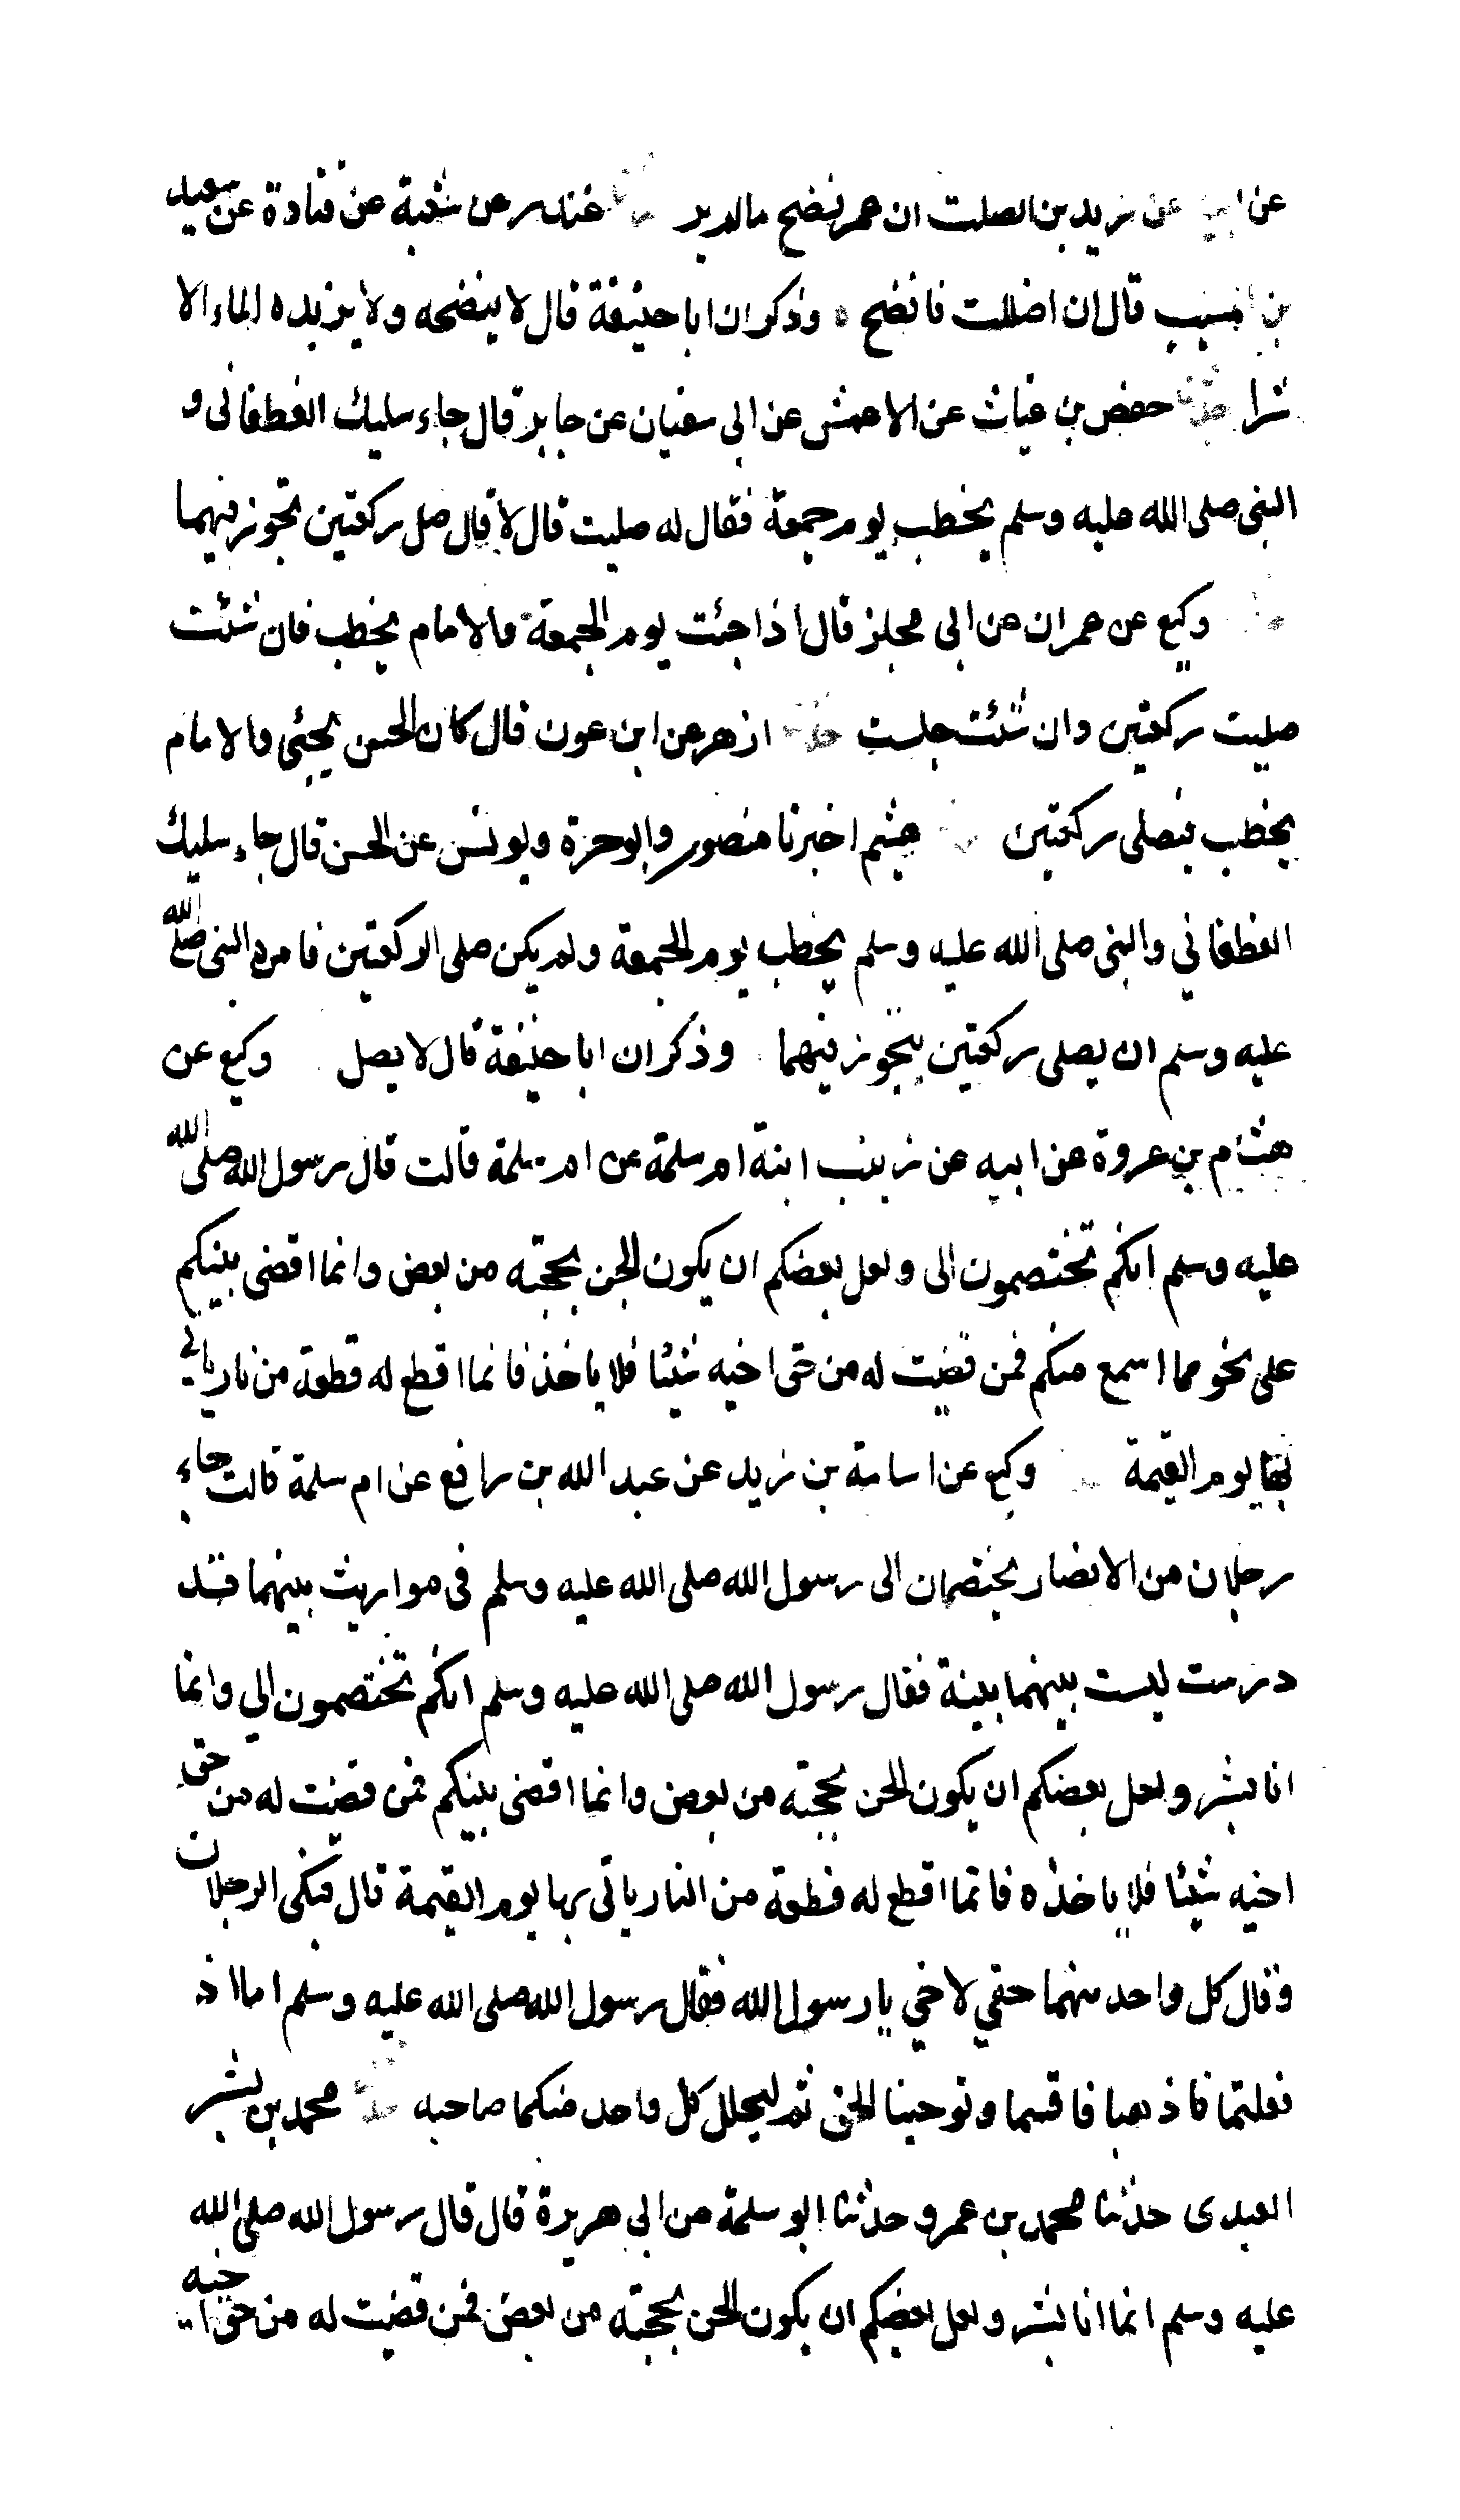 عن ابيه عن زييد بن الصلت ان عمر نضح مالم ير غندر عن شعبة عن قتادة عن سعيد
بن المسيب قال ان اضللت فانضح ه وذكر ان ابا حنيفة قال لا ينضحه ولا يزيده الماء الا
شرا حدثنا حفص بن غياث عن الاعمش عن ابى سفيان عن جابر قال جاء سليك الغطفانى و
النبى صلى الله عليه وسلم يخطب يوم جمعة فقال له صليت قال لا قال صل ركعتين تجوز فيهما
وكيع عن عمران عن ابى مجلز قال اذا جئت يوم الجمعة والامام يخطب فان شئت
صليت ركعتين وان شئت جلست ازهر عن ابن عون قال كان الحسن يجئى والامام
يخطب فيصلى ركعتين هشيم اخبرنا منصور وابو حرة ويونس عن الحسن قال جاء سليك
الغطفاني والنبى صلى الله عليه وسلم يخطب يوم الجمعة ولم يكن صلى الركعتين فامره النبى صلى الله
عليه وسلم ان يصلى ركعتين يتجوز فيهما وذكر ان ابا حنيفة قال لا يصل وكيع عن
هشام بن عروة عن ابيه عن زينب ابنة ام سلمة عن ام سلمة قالت قال رسول الله صلى الله
عليه وسلم انكم تختصمون الى ولعل بعضكم ان يكون الحن بحجته من بعض وانما اقضى بينكم
على نحو مما اسمع منكم فمن قضيت له من حق اخيه شيئا فلا ياخذ فانما اقطع له قطعة من نار ياتي
بها يوم القيمة وكيع عن اسامة بن زيد عن عبد الله بن رافع عن ام سلمة قالت جاء
رجلان من الانصار يختصمان الى رسول الله صلى الله عليه وسلم فى مواريث بينهما قد
درست ليست بينهما بينة فقال رسول الله صلى الله عليه وسلم انكم تختصمون الي وانما
انا بشر ولعل بعضكم ان يكون الحن بحجته من بعض وانما اقضى بينكم فمن قضيت له من حق
اخيه شيئا فلا ياخذه فانما اقطع له قطعة من النار ياتى بها يوم القيمة قال فبكى الرجلان
وقال كل واحد منهما حقي لاخي يا رسول الله فقال رسول الله صلى الله عليه وسلم اما اذ
فعلتما فاذهبا فاقسما وتوخينا الحق ثم ليحلل كل واحد منكما صاحبه محمد بن بشر
العبدى حدثنا محمد بن عمرو حدثنا ابو سلمة عن ابى هريرة قال قال رسول الله صلى الله
عليه وسلم انما انا بشر ولعل بعضكم ان يكون الحن بحجته من بعض فمن قضيت له من حق اخيه